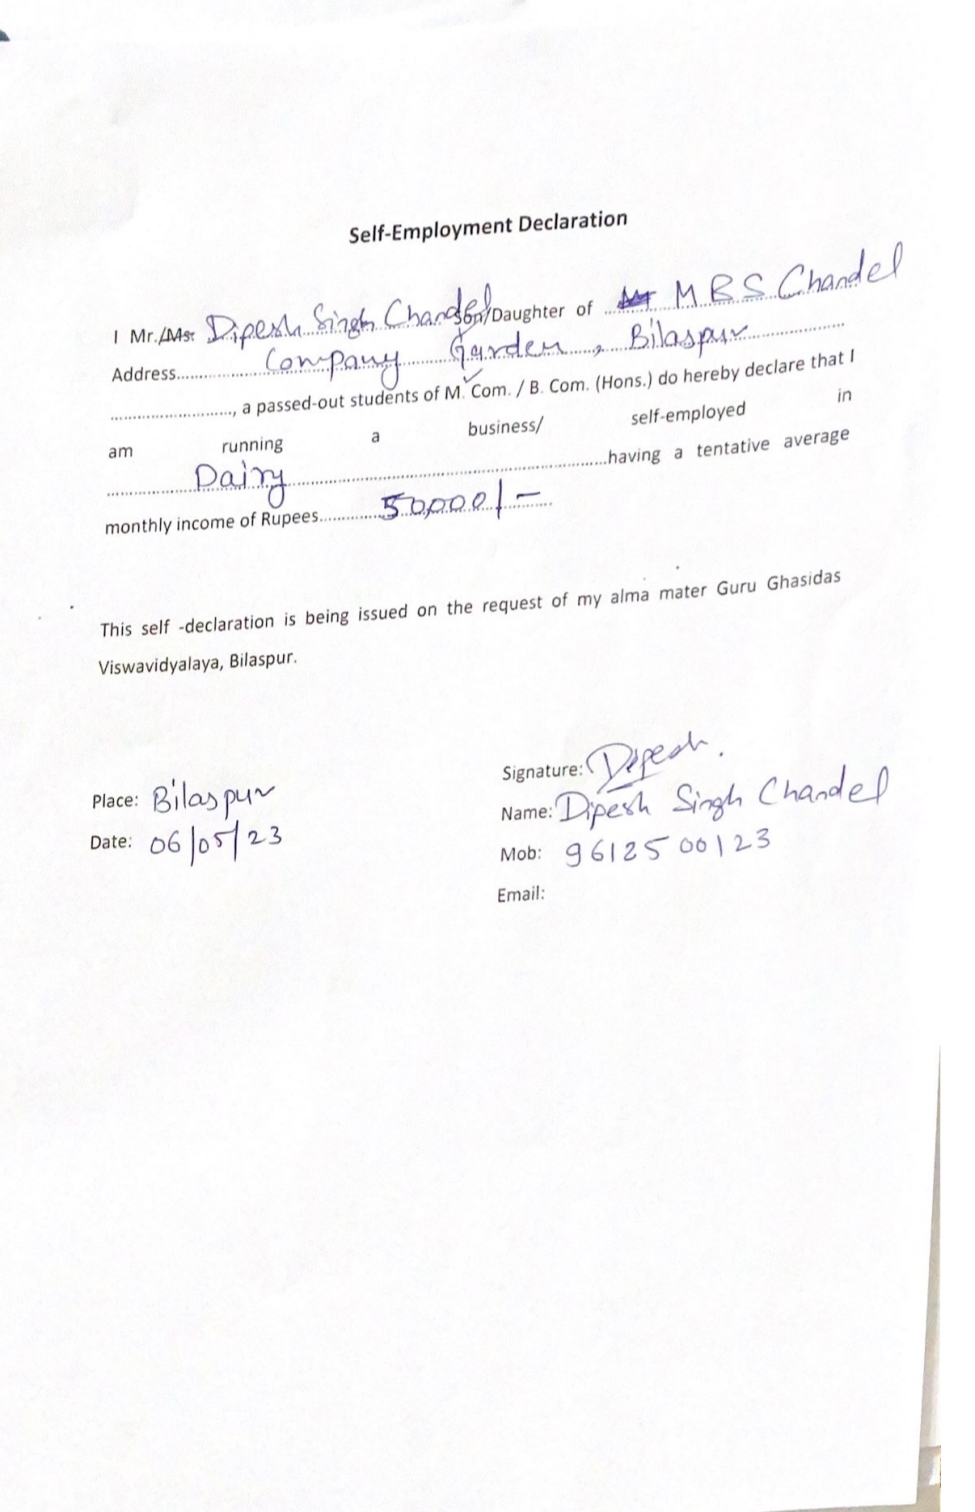 Self-Employment Declaration
I Mr./Ms. Dipesh Singh Chandel Son/Daughter of M B S Chandel
Address.......... Company Garden, Bilaspur ..........
.........................., a passed-out students of M. Com. / B. Com. (Hons.) do hereby declare that I
am running a business/ self-employed in
.......... Dairy ..........having a tentative average
monthly income of Rupees.......... 50,000/- ..........
This self -declaration is being issued on the request of my alma mater Guru Ghasidas
Viswavidyalaya, Bilaspur.
Place: Bilaspur
Date: 06/05/23
Signature: Dipesh.
Name: Dipesh Singh Chandel
Mob: 9612500123
Email: